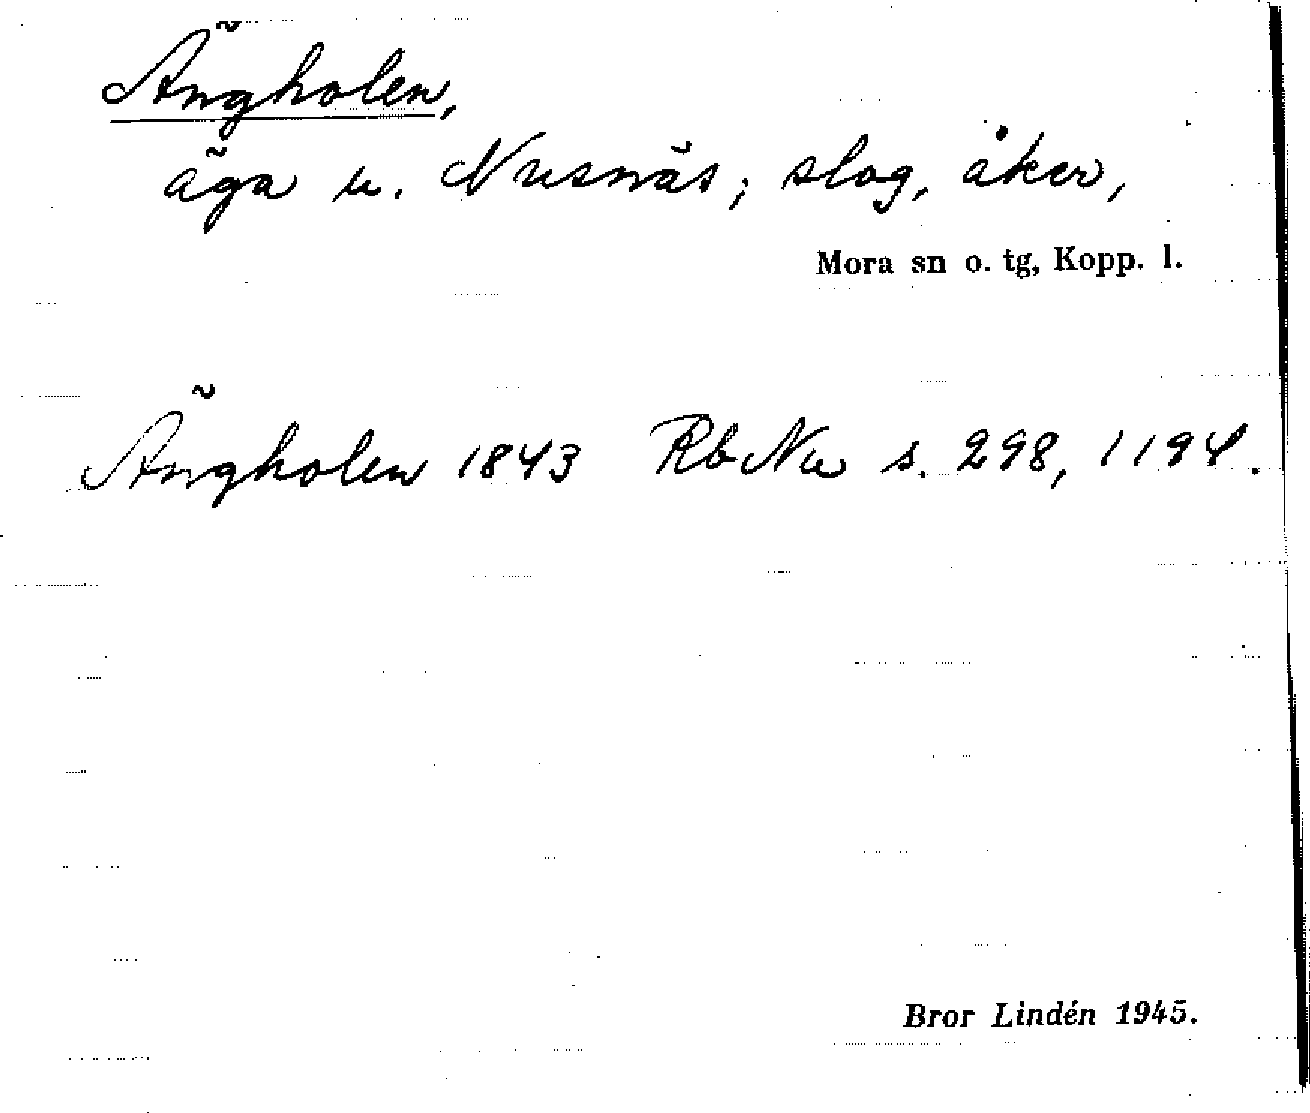 Ängholen,
äga u. Nusnäs; slog, åker,
Mora sn o. tg, Kopp. l.
Ängholen 1843 Rb Nu s. 298, 1194.
Bror Lindén 1945.